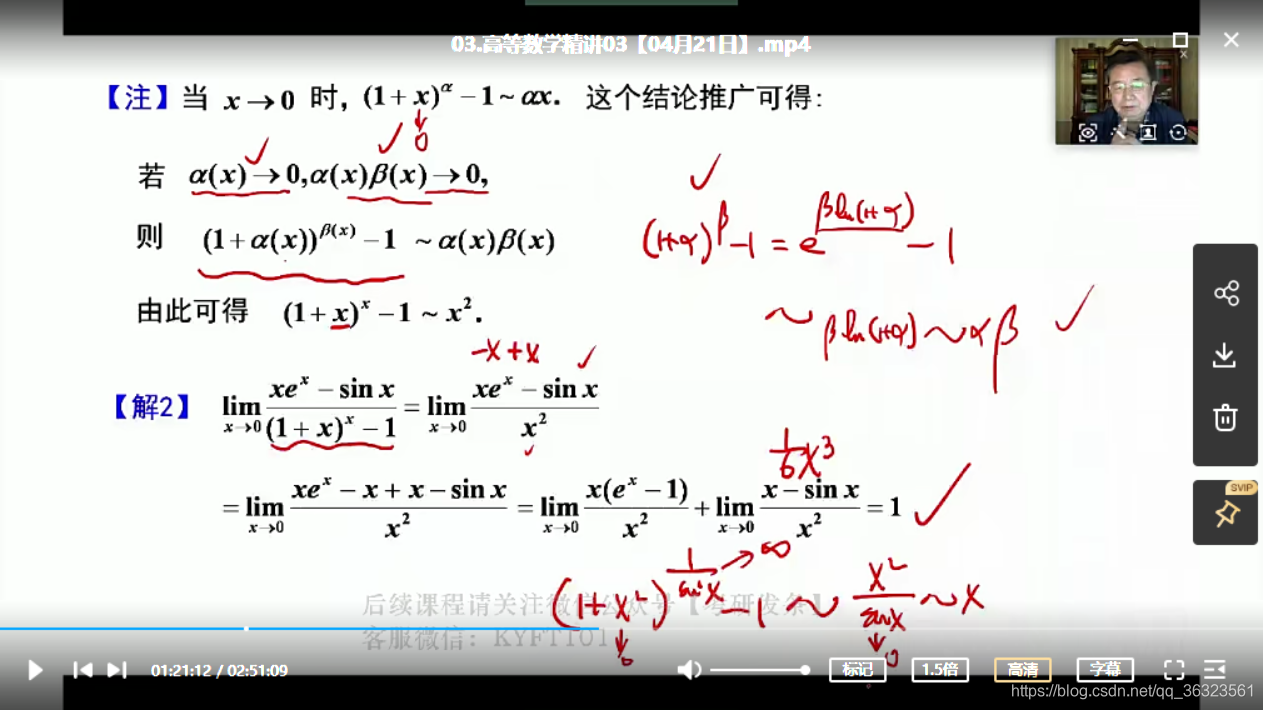 03.高等数学精讲03【04月21日】.mp4
【注】当 x→0 时, (1+x)^α −1~αx. 这个结论推广可得:
↓
0
若 α(x)→0,α(x)β(x)→0,
则 (1+α(x))^β(x) −1 ~α(x)β(x)
(1+α)^β −1 = e^βln(1+α) −1
~βln(1+α)~αβ
由此可得 (1+x)^x −1~x².
−x+x
【解2】 lim x→0 (xe^x − sin x)/((1+x)^x −1) = lim x→0 (xe^x − sin x)/x²
1/6 x³
= lim x→0 (xe^x − x + x − sin x)/x² = lim x→0 x(e^x −1)/x² + lim x→0 (x − sin x)/x² = 1
(1+x²)^(1/sin x) −1 ~ x²/sin x ~ x
→∞
↓
0
↓
0
后续课程请关注微信公众号【考研发条】
客服微信:KYFT101
01:21:12 / 02:51:09
标记
1.5倍
高清
字幕
SVIP
https://blog.csdn.net/qq_36323561